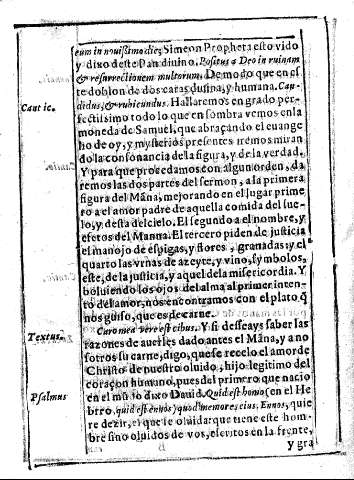 eum in nouissimo die; Simeon Propheta esto vido
y dixo deste Pan diuino, Positus a Deo in ruinam
& resurrectionem multorum. De modo que en es
te doblon de dos caras diuina, y humana. Can-
Cant ic.
didus, & rubicundus. Hallaremos en grado per-
fectissimo todo lo que en sombra vemos en la
moneda de Samuel, que abraçando el euange
ho de oy, y mysterios presentes iremos miran
do la consonancia de la figura, y de la verdad.
Y para que procedamos con algun orden, da
remos las dos partes del sermon, a la primera
figura del Mâna, mejorando en el lugar prime
ro a el amor padre de aquella comida del sue-
lo, y desta del cielo. El segundo a el nombre, y
efetos del Manna. El tercero piden de justicia
el manojo de espigas, y flores, granadas: y el
quarto las vrnas de azeyte, y vino, symbolos,
este, de la justicia, y aquel de la misericordia. Y
boluiendo los ojos del alma al primer inten-
to del amor, nos encontramos con el plato q̃
nos guiso, que es de carne.
Textus.
Caro mea vere est cibus. Y si desseays saber las
razones de auerles dado antes el Mâna, y a no
sotros su carne, digo, que se recelo el amor de
Christo de nuestro oluido, hijo legitimo del
coraçon humano, pues del primero que nacio
en el mũdo dixo Dauid. Quid est homo (en el He
Psalmus
breo. quid est ennos) quod memor es, eius, Ennos, quie
re dezir, el que se oluida: que tiene este hom-
bre sino oluidos de vos, escritos en la frente,
y gra